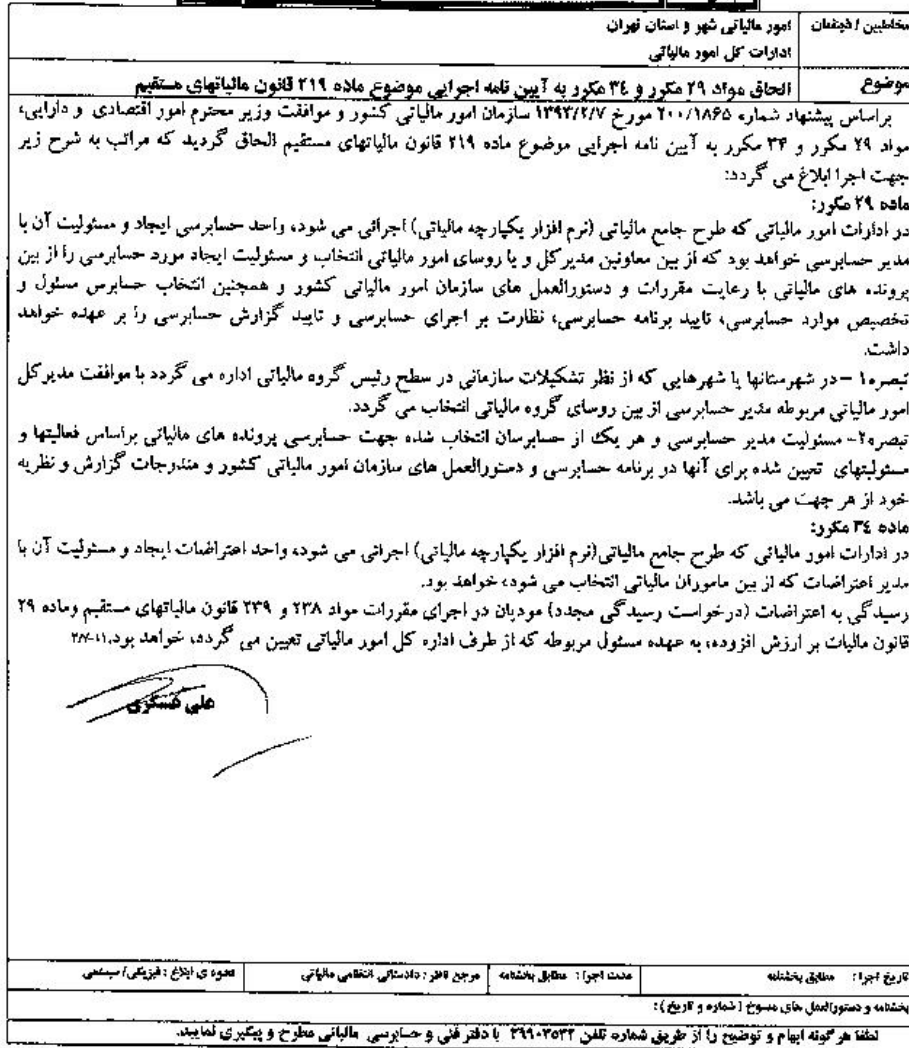 مخاطبین / ذینفعان
امور مالیاتی شهر و استان تهران
ادارات کل امور مالیاتی
موضوع
الحاق مواد ۲۹ مکرر و ۳٤ مکرر به آیین نامه اجرایی موضوع ماده ۲۱۹ قانون مالیاتهای مستقیم
براساس پیشنهاد شماره ۲۰۰/۱۸۶۵ مورخ ۱۳۹۳/۲/۷ سازمان امور مالیاتی کشور و موافقت وزیر محترم امور اقتصادی و دارایی،
مواد ۲۹ مکرر و ۳۴ مکرر به آیین نامه اجرایی موضوع ماده ۲۱۹ قانون مالیاتهای مستقیم الحاق گردید که مراتب به شرح زیر
جهت اجرا ابلاغ می گردد:
ماده ۲۹ مکرر:
در ادارات امور مالیاتی که طرح جامع مالیاتی (نرم افزار یکپارچه مالیاتی) اجرائی می شود، واحد حسابرسی ایجاد و مسئولیت آن با
مدیر حسابرسی خواهد بود که از بین معاونین مدیرکل و یا روسای امور مالیاتی انتخاب و مسئولیت ایجاد مورد حسابرسی را از بین
پرونده های مالیاتی با رعایت مقررات و دستورالعمل های سازمان امور مالیاتی کشور و همچنین انتخاب حسابرس مسئول و
تخصیص موارد حسابرسی، تایید برنامه حسابرسی، نظارت بر اجرای حسابرسی و تایید گزارش حسابرسی را بر عهده خواهد
داشت.
تبصره۱ –در شهرستانها یا شهرهایی که از نظر تشکیلات سازمانی در سطح رئیس گروه مالیاتی اداره می گردد با موافقت مدیرکل
امور مالیاتی مربوطه مدیر حسابرسی از بین روسای گروه مالیاتی انتخاب می گردد.
تبصره۲– مسئولیت مدیر حسابرسی و هر یک از حسابرسان انتخاب شده جهت حسابرسی پرونده های مالیاتی براساس فعالیتها و
مسئولیتهای تعیین شده برای آنها در برنامه حسابرسی و دستورالعمل های سازمان امور مالیاتی کشور و مندرجات گزارش و نظریه
خود از هر جهت می باشد.
ماده ۳٤ مکرر:
در ادارات امور مالیاتی که طرح جامع مالیاتی(نرم افزار یکپارچه مالیاتی) اجرائی می شود، واحد اعتراضات ایجاد و مسئولیت آن با
مدیر اعتراضات که از بین ماموران مالیاتی انتخاب می شود، خواهد بود.
رسیدگی به اعتراضات (درخواست رسیدگی مجدد) مودیان در اجرای مقررات مواد ۲۳۸ و ۲۳۹ قانون مالیاتهای مستقیم وماده ۲۹
قانون مالیات بر ارزش افزوده، به عهده مسئول مربوطه که از طرف اداره کل امور مالیاتی تعیین می گردد، خواهد بود.
علی عسکری
تاریخ اجرا : مطابق بخشنامه
مدت اجرا : مطابق بخشنامه
مرجع ناظر : دادستانی انتظامی مالیاتی
نحوه ی ابلاغ : فیزیکی/ سیستمی
بخشنامه و دستورالعمل های منسوخ ( شماره و تاریخ ) :
لطفا هر گونه ابهام و توضیح را از طریق شماره تلفن ۳۹۹۰۳۵۳۳ با دفتر فنی و حسابرسی مالیاتی مطرح و پیگیری نمایید.